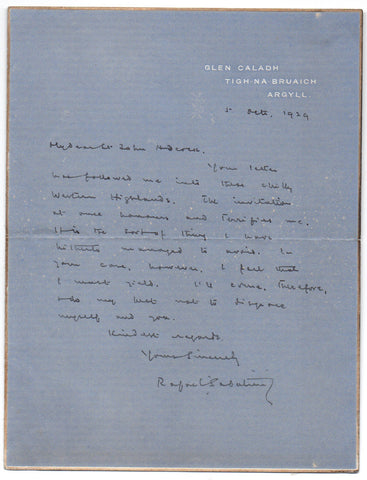 GLEN CALADH
TIGH-NA-BRUAICH
ARGYLL.
5 Oct. 1929
My dear St John Adcock.
Your letter
has followed me into these chilly
Western Highlands. The invitation
at once honours and terrifies me.
It is the sort of thing I have
hitherto managed to avoid. In
your case, however, I feel that
I must yield. I'll come, therefore,
& do my best not to disgrace
myself and you.
Kindest regards.
Yours Sincerely
Rafael Sabatini